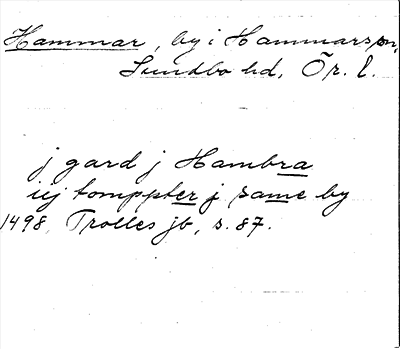 Hammar, by i Hammars sn,
Sundbo hd, Ör. l.
j gard j Hambra
uj tomppter j same by
1498, Trolles jb, s. 87.